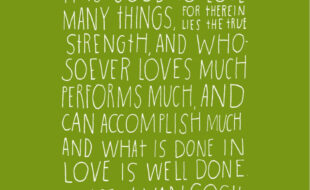 MANY THINGS, FOR THEREIN
LIES THE TRUE
STRENGTH, AND WHO-
SOEVER LOVES MUCH
PERFORMS MUCH, AND
CAN ACCOMPLISH MUCH
AND WHAT IS DONE IN
LOVE IS WELL DONE
VAN GOGH